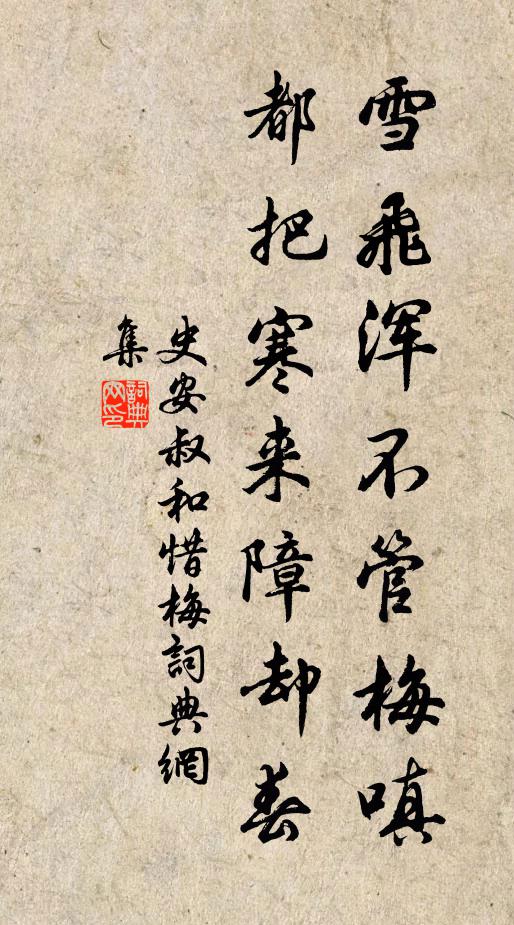 雪飛渾不管梅嗔
都把寒来障却春
史安叔和惜梅詞典網
集
詞典
网印